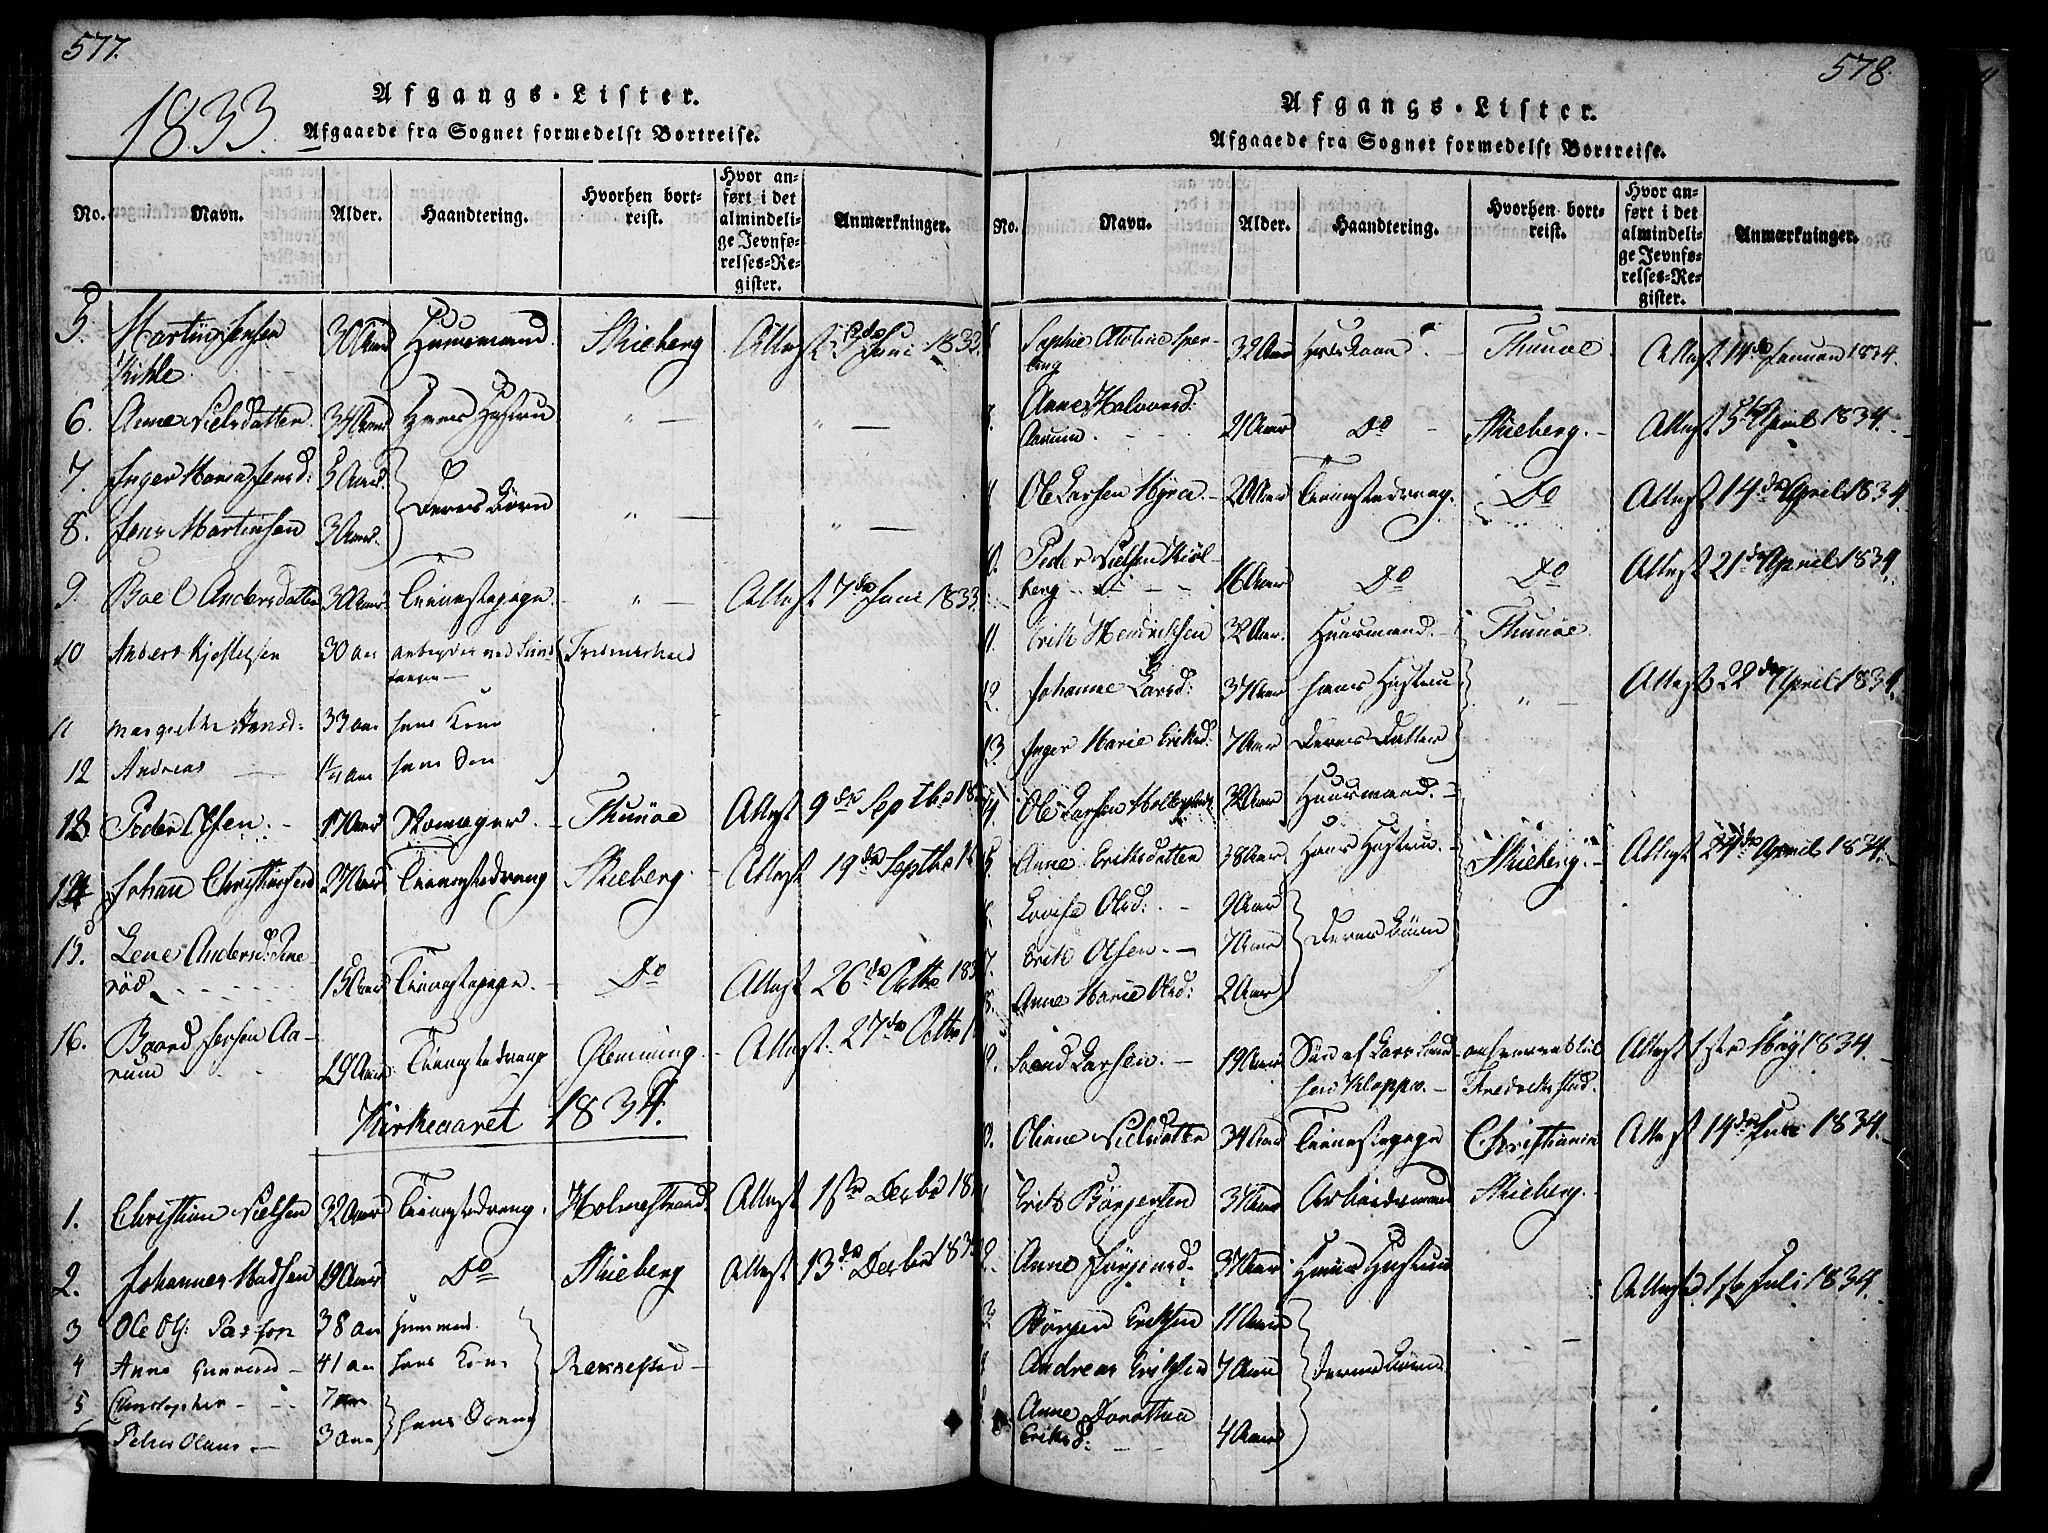 577.
1833.
Afgangs-Lister.
Afgaaede fra Sognet formedelst Bortreise.
No. Navn. Alder. Haandtering. Hvorhen bortreist. Hvor anført i det almindelige Jevnførelses-Register. Anmærkninger.
5. Martin Jensen 30 Aar Huusmand Skieberg Attest Juni 1833
Kihle
6. Anne Nielsdatter 34 Aar Hans Hustru " — " —
7. Inger Maria Jensd: 5 Aar
8. Jens Martinsen 3 Aar. Deres Børn " — " —
9. Boel Andersdatter 30 Aar Tienestepige " — Attest 7de Juni 1833
10 Anders Kjostelsen 30 aar arbeyder ved
11 Margrethe Hansd: 33 aar hans Kone
12 Andreas — aar hans Søn
13 Peder Olsen. - 17 Aar Thunøe Attest 9de Septbr
14 Johan Christiansen 27 Aar Tienestedreng Skieberg. - Attest 19de Septbr
15. Lene Andersd:
rød 15 Aar Tienestepige. - Do Attest 26de Octbr 183
16. Baard Jensen Aa-
rum 29 Aar Tienestedreng Glemming. - Attest. 27de Octbr
Kirkeaaret 1834.
1. Christian Nielsen 32 Aar Tienestedreng. Holmestrand Attest 1ste Decbr 18
2. Johannes Madsen 19 Aar Do Skieberg Attest 13de Decbr 183
3 Ole Ols: 38 aar Huusmand.
4 Anne Gunnersd — 41 aar hans Kone
5 Christopher - 7 aar
Peter Olaus — 3 aar hans
578.
Afgangs-Lister.
Afgaaede fra Sognet formedelst Bortreise.
No. Navn. Alder. Haandtering. Hvorhen bortreist. Hvor anført i det almindelige Jevnførelses-Register. Anmærkninger.
Sophie
berg 32 Aar Thunøe Attest 14de Januar 1834.
Anne Halvorsd:
Aarum. 21 Aar Do - Skieberg. - Attest 5te April 1834. -
Ole Larsen Myren. - 20 Aar Tienestedreng. Do Attest 14de April 1834.
10. Peder Nielsen Kiøl-
berg 16 Aar Do Do Attest 21de April 1834.
11. Erik Hendrichsen 32 Aar. Huusmand. Thunøe
12. Johanne Larsd: 37 Aar hans Hustru " — Attest 22de April 1834.
13. Inger Marie Eriksd: 7 Aar Deres Datter
14. Ole Larsen 32 Aar Huusmand. -
5. Anne Eriksdatter 38 Aar. Hans Hustru. Skieberg. - Attest 24de April 1834.
6. Lovise Olsd: - 9 Aar
7. Erik Olsen. — 7 Aar Deres Børn
8. Anne Marie Olsd: 2 Aar
9. Svend Larsen. - 19 Aar Søn af Lars Svend-
sen Kloppe. - Fredrikstad. Attest 1ste May 1834. -
0. Oliane Nielsdatter 34 Aar Tienestepige Christiania Attest 14de Juni 1834. -
1 Erik Børgersen 37 Aar Arbeidsmand Skieberg. -
2. Anne Jørgensd. 37 Aar Hans Hustru
Attest d. 1ste Juli 1834.
3 Børger Eriksen 11 Aar
Andreas Eriksen 7 Aar Deres Børn
Anne Dorothea
Eriksd: 4 Aar